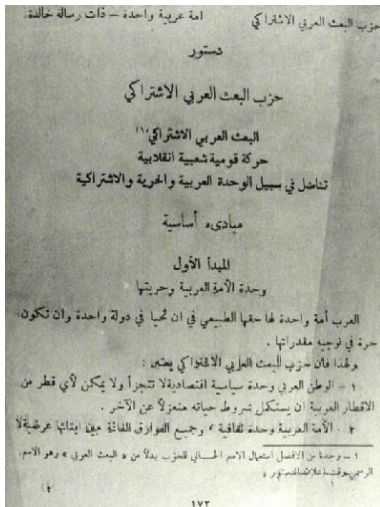 حزب البعث العربي الاشتراكي امة عربية واحدة – ذات رسالة خالدة
دستور
حزب البعث العربي الاشتراكي
البعث العربي الاشتراكي (١)
حركة قومية شعبية انقلابية
تناضل في سبيل الوحدة العربية والحرية والاشتراكية
مبادىء أساسية
المبدأ الأول
وحدة الأمة العربية وحريتها
العرب أمة واحدة لها حقها الطبيعي في ان تحيا في دولة واحدة وان تكون
حرة في توجيه مقدراتها .
ولهذا فان حزب البعث العربي الاشتراكي يعتبر :
١ – الوطن العربي وحدة سياسية اقتصادية لا تتجزأ ولا يمكن لأي قطر من
الاقطار العربية ان يستكمل شروط حياته منعزلاً عن الآخر .
٢ - الأمة العربية وحدة ثقافية ، وجميع الفوارق القائمة بين ابنائها عرضية
١ – من الافضل استعمال الاسم للحزب بدلاً من « البعث العربي » وهو الاسم
الرسمي وقت اعلان الدستور .
١٧٣